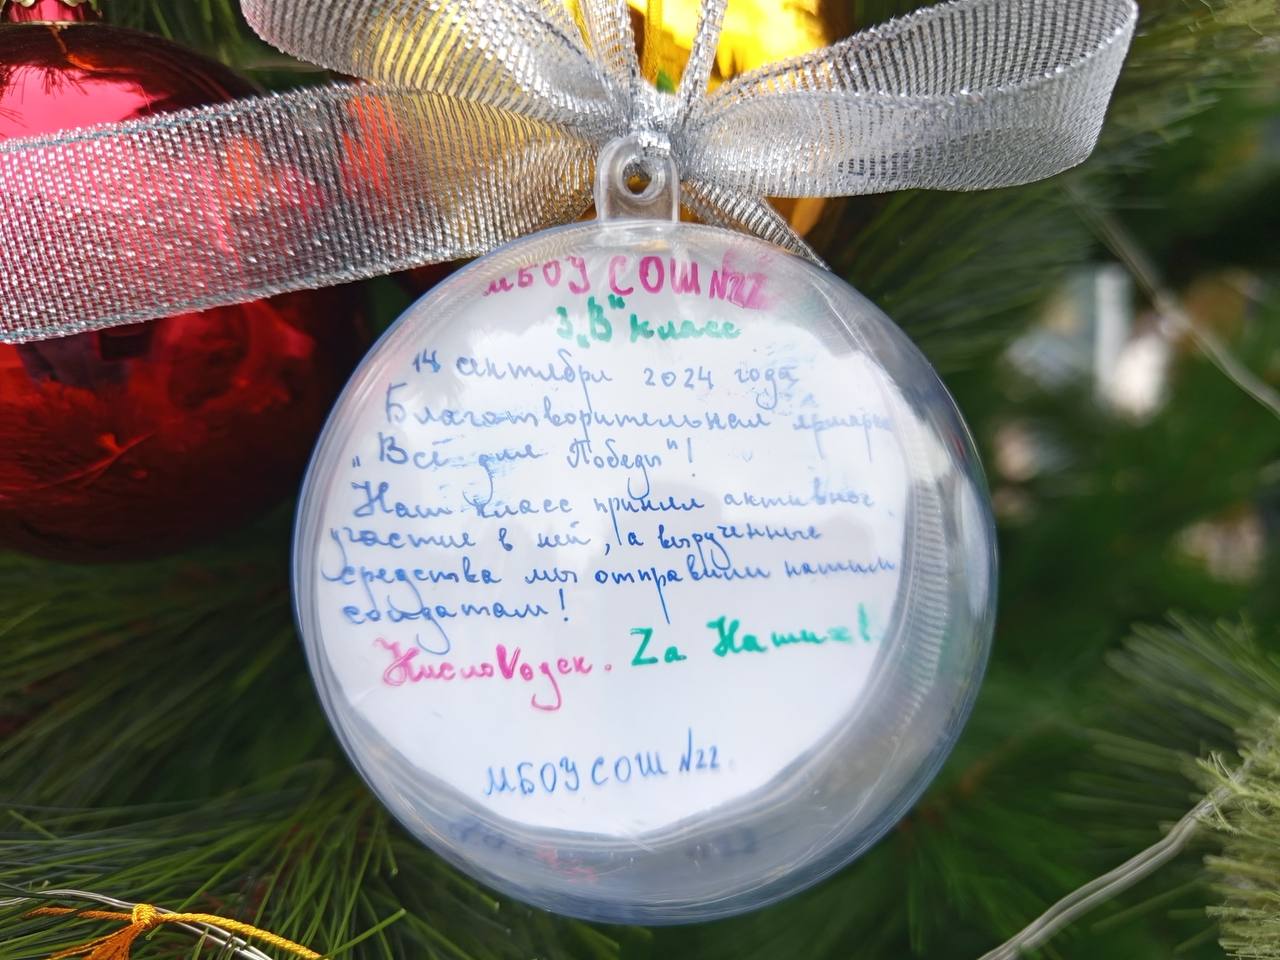 МБОУ СОШ №22
3 „В" класс
14 сентября 2024 года
Благотворительная ярмарка
„Всё для Победы"!
Наш класс принял активное
участие в ней, а вырученные
средства мы отправили нашим
солдатам!
КислоVодск. Zа Наших!
МБОУ СОШ №22